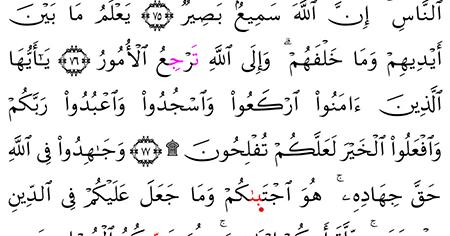 ٱلنَّاسِ ۚ إِنَّ ٱللَّهَ سَمِيعُۢ بَصِيرٞ ٧٥ يَعْلَمُ مَا بَيْنَ
أَيْدِيهِمْ وَمَا خَلْفَهُمْ ۗ وَإِلَى ٱللَّهِ تَرْجِعُ ٱلْأُمُورُ ٧٦ يَٰٓأَيُّهَا
ٱلَّذِينَ ءَامَنُوا۟ ٱرْكَعُوا۟ وَٱسْجُدُوا۟ وَٱعْبُدُوا۟ رَبَّكُمْ
وَٱفْعَلُوا۟ ٱلْخَيْرَ لَعَلَّكُمْ تُفْلِحُونَ ٧٧ ۩ وَجَٰهِدُوا۟ فِى ٱللَّهِ
حَقَّ جِهَادِهِۦ ۚ هُوَ ٱجْتَبَىٰكُمْ وَمَا جَعَلَ عَلَيْكُمْ فِى ٱلدِّينِ